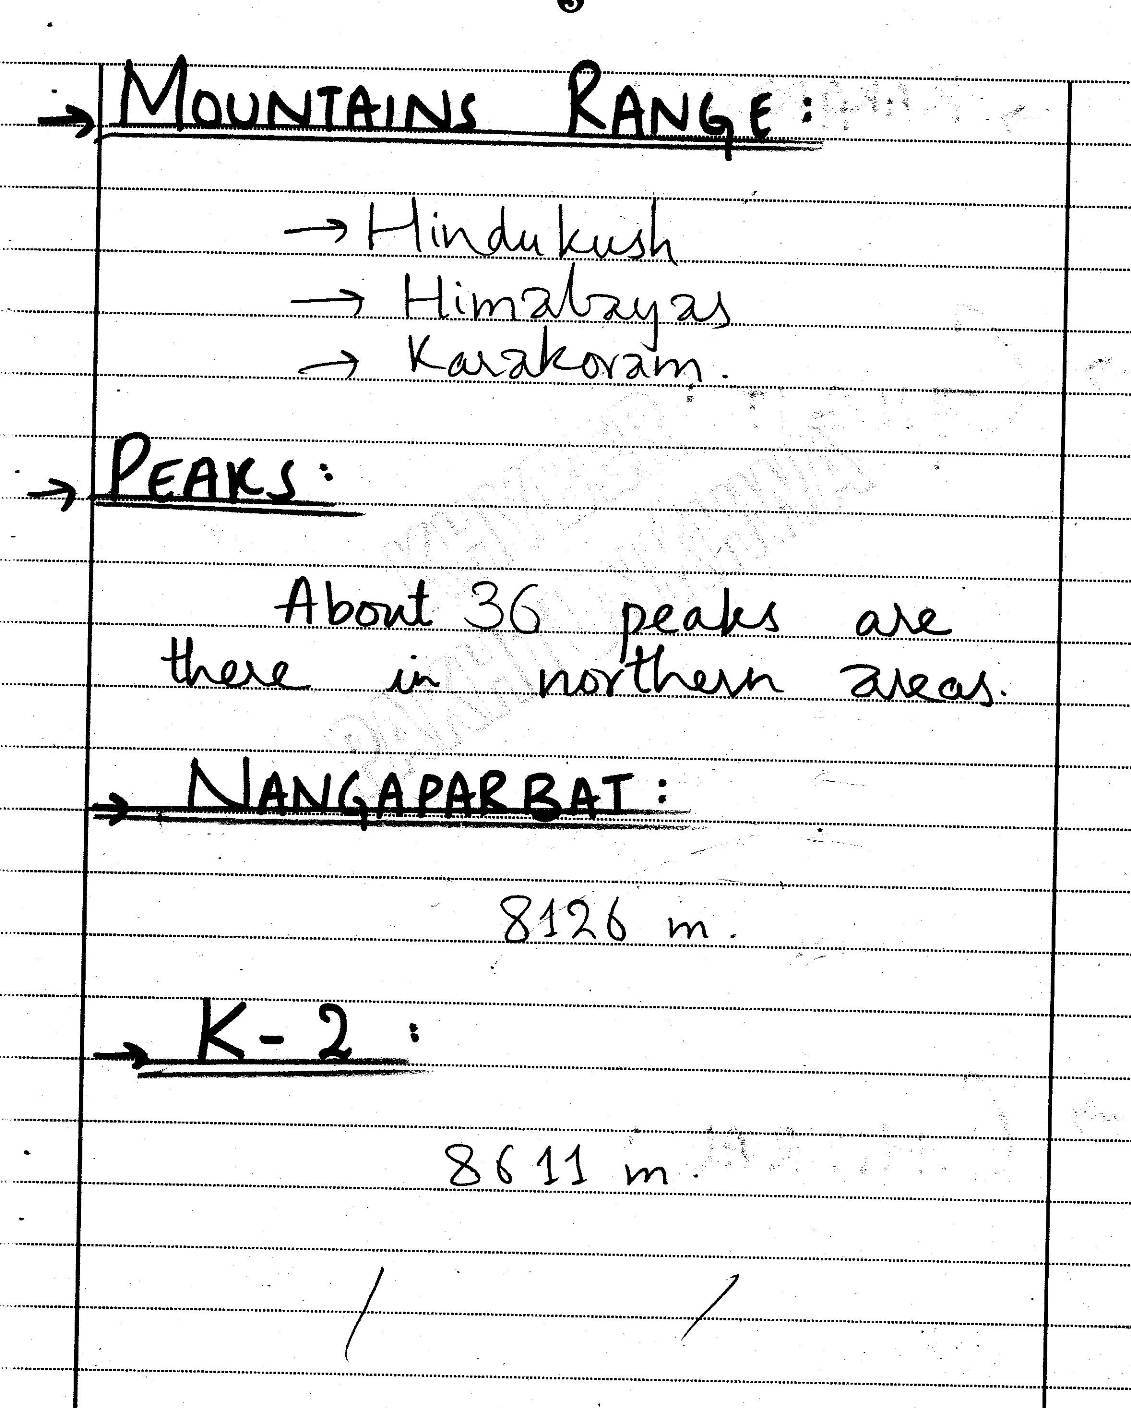 → MOUNTAINS RANGE:
→ Hindukush
→ Himalayas
→ Karakoram.
→ PEAKS:
About 36 peaks are
there in northern areas.
→ NANGAPARBAT:
8126 m.
→ K-2:
8611 m.